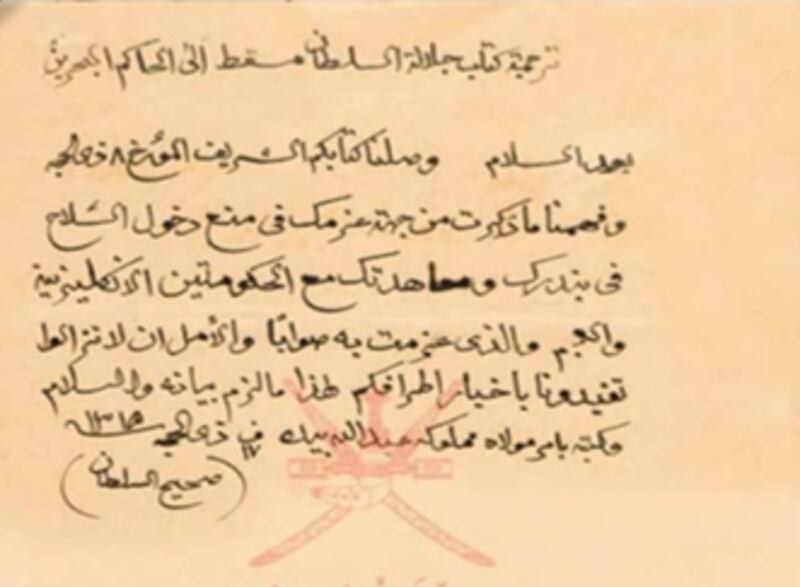 ترجمة كتاب جلالة السلطان مسقط الى الحاكم البحرين
بعد السلام وصلنا كتابكم الشريف المؤرخ ٨ ذي الحجه
وفهمنا ما ذكرت من جهة عزمك في منع دخول السلاح
في بندرك ومعاهدتك مع الحكومتين الانكليزية
والعجم والذي عزمت به صوابًا والأمل ان لا تزالوا
تفيدونا باخبار اطرافكم هذا ما لزم بيانه والسلام
وكتبه بامر مولاه مملوكه عبدالله بيك في ١٧ ذي الحجه ١٣١٥
(صحيح السلطان)